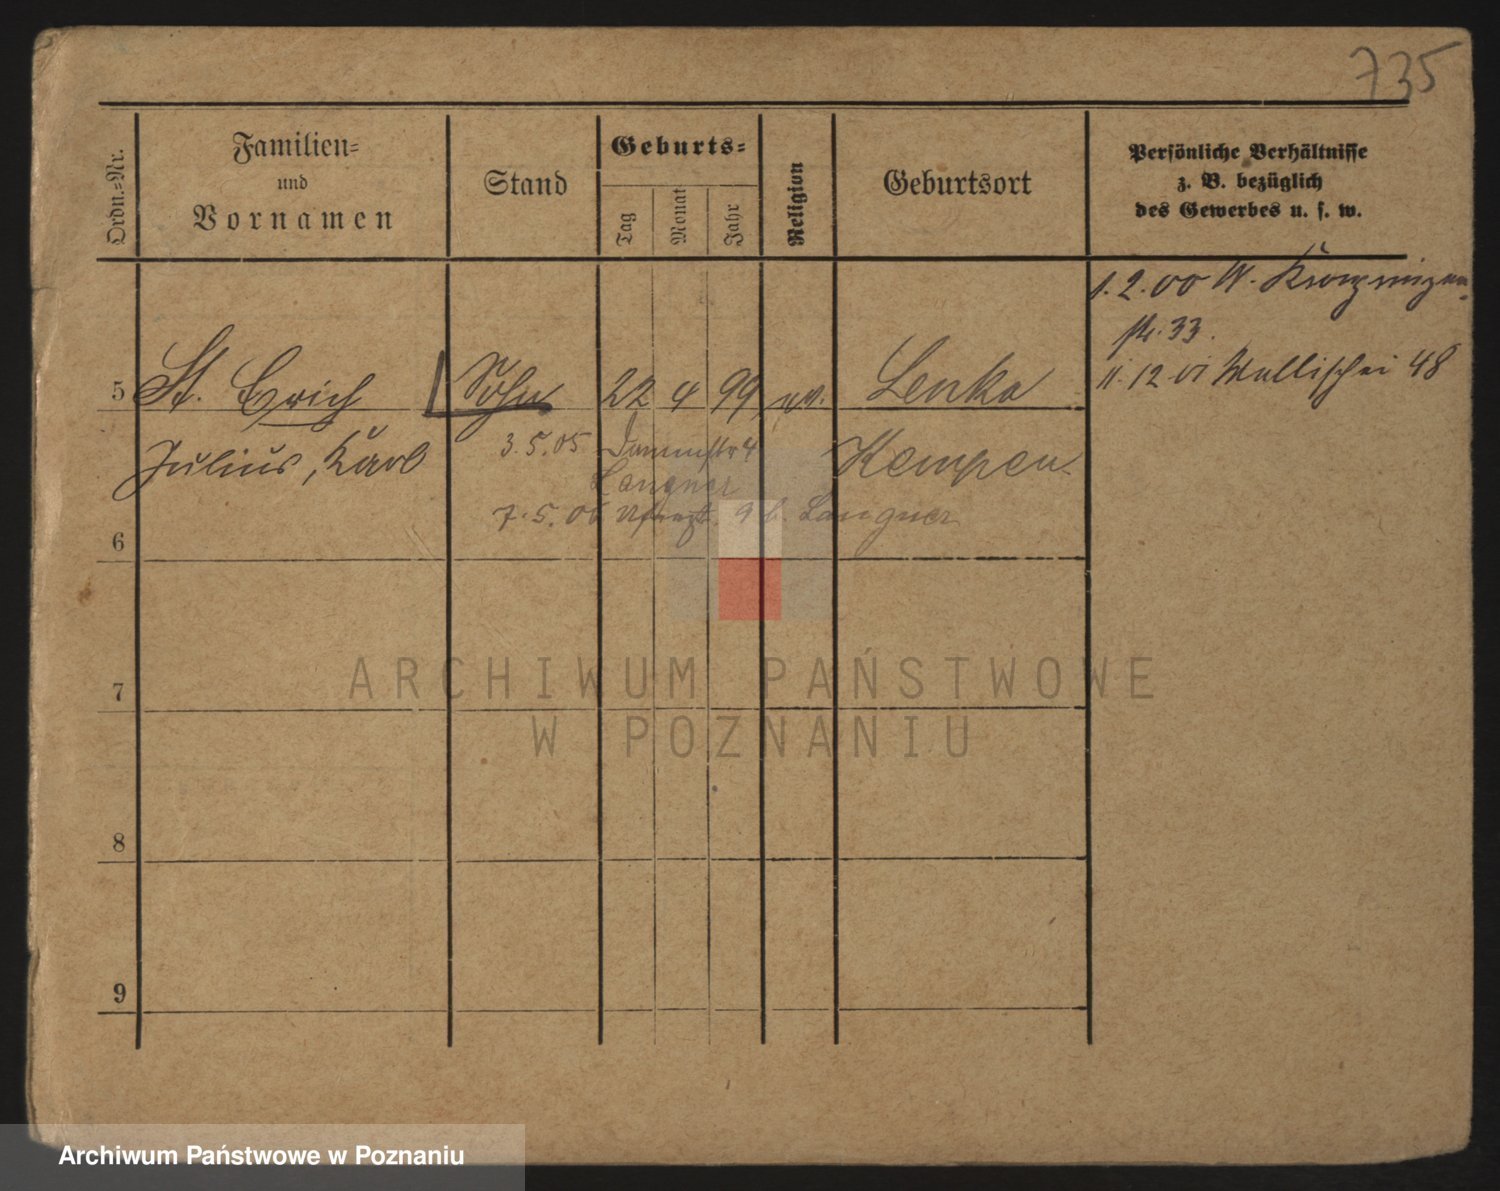 735
Ordn.-Nr.
Familien-
und
Vornamen
Stand
Geburts-
Tag
Monat
Jahr
Religion
Geburtsort
Persönliche Verhältnisse
z. B. bezüglich
des Gewerbes u. s. w.
1. 2. 00 W. Kronprinzen-
str. 33.
11. 12 01 Wallischei 48
5 St. Erich Sohn 22 4 99 ev. Lenka
Julius, Karl 3. 5. 05 Dammstr 4 Kempen
Langner
7. 5. 06 9 b. Langner
6
7
8
9
ARCHIWUM PAŃSTWOWE
W POZNANIU
Archiwum Państwowe w Poznaniu